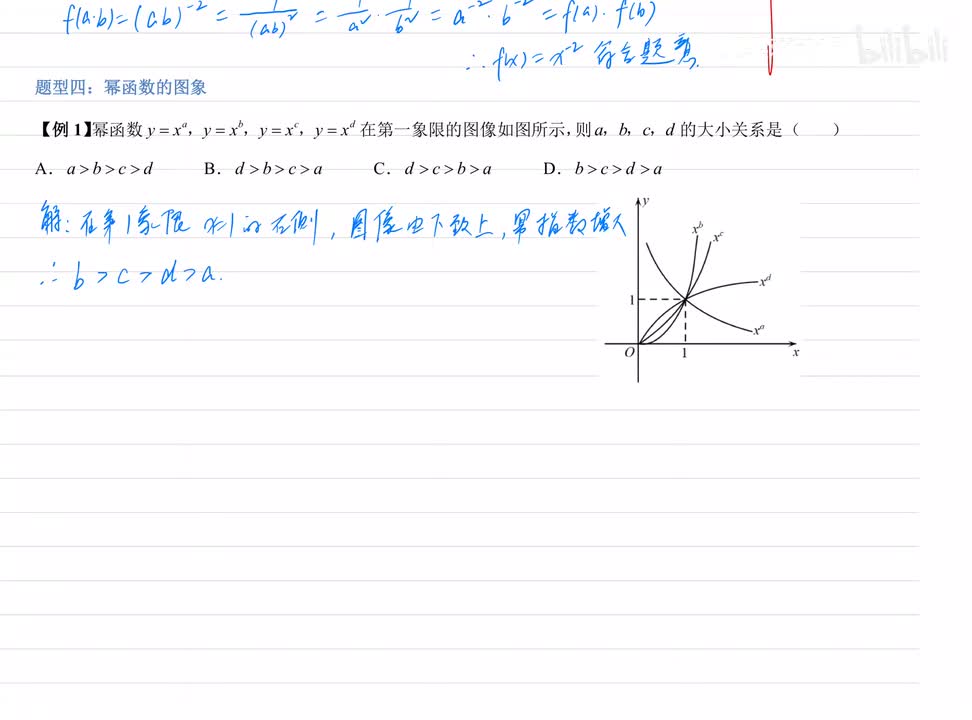 f(a·b)=(ab)⁻² = 1/(ab)² = 1/a² · 1/b² = a⁻²·b⁻² = f(a)·f(b)
∴ f(x)=x⁻² 符合题意.
bilibili
题型四：幂函数的图象
【例 1】幂函数 y = xᵃ，y = xᵇ，y = xᶜ，y = xᵈ 在第一象限的图像如图所示，则 a，b，c，d 的大小关系是（　　）
A． a > b > c > d　B． d > b > c > a　C． d > c > b > a　D． b > c > d > a
解：在第1象限 x=1 的右侧，图像由下致上，幂指数增大
∴ b > c > d > a.
y
xᵇ
xᶜ
xᵈ
1
xᵃ
O 1 x